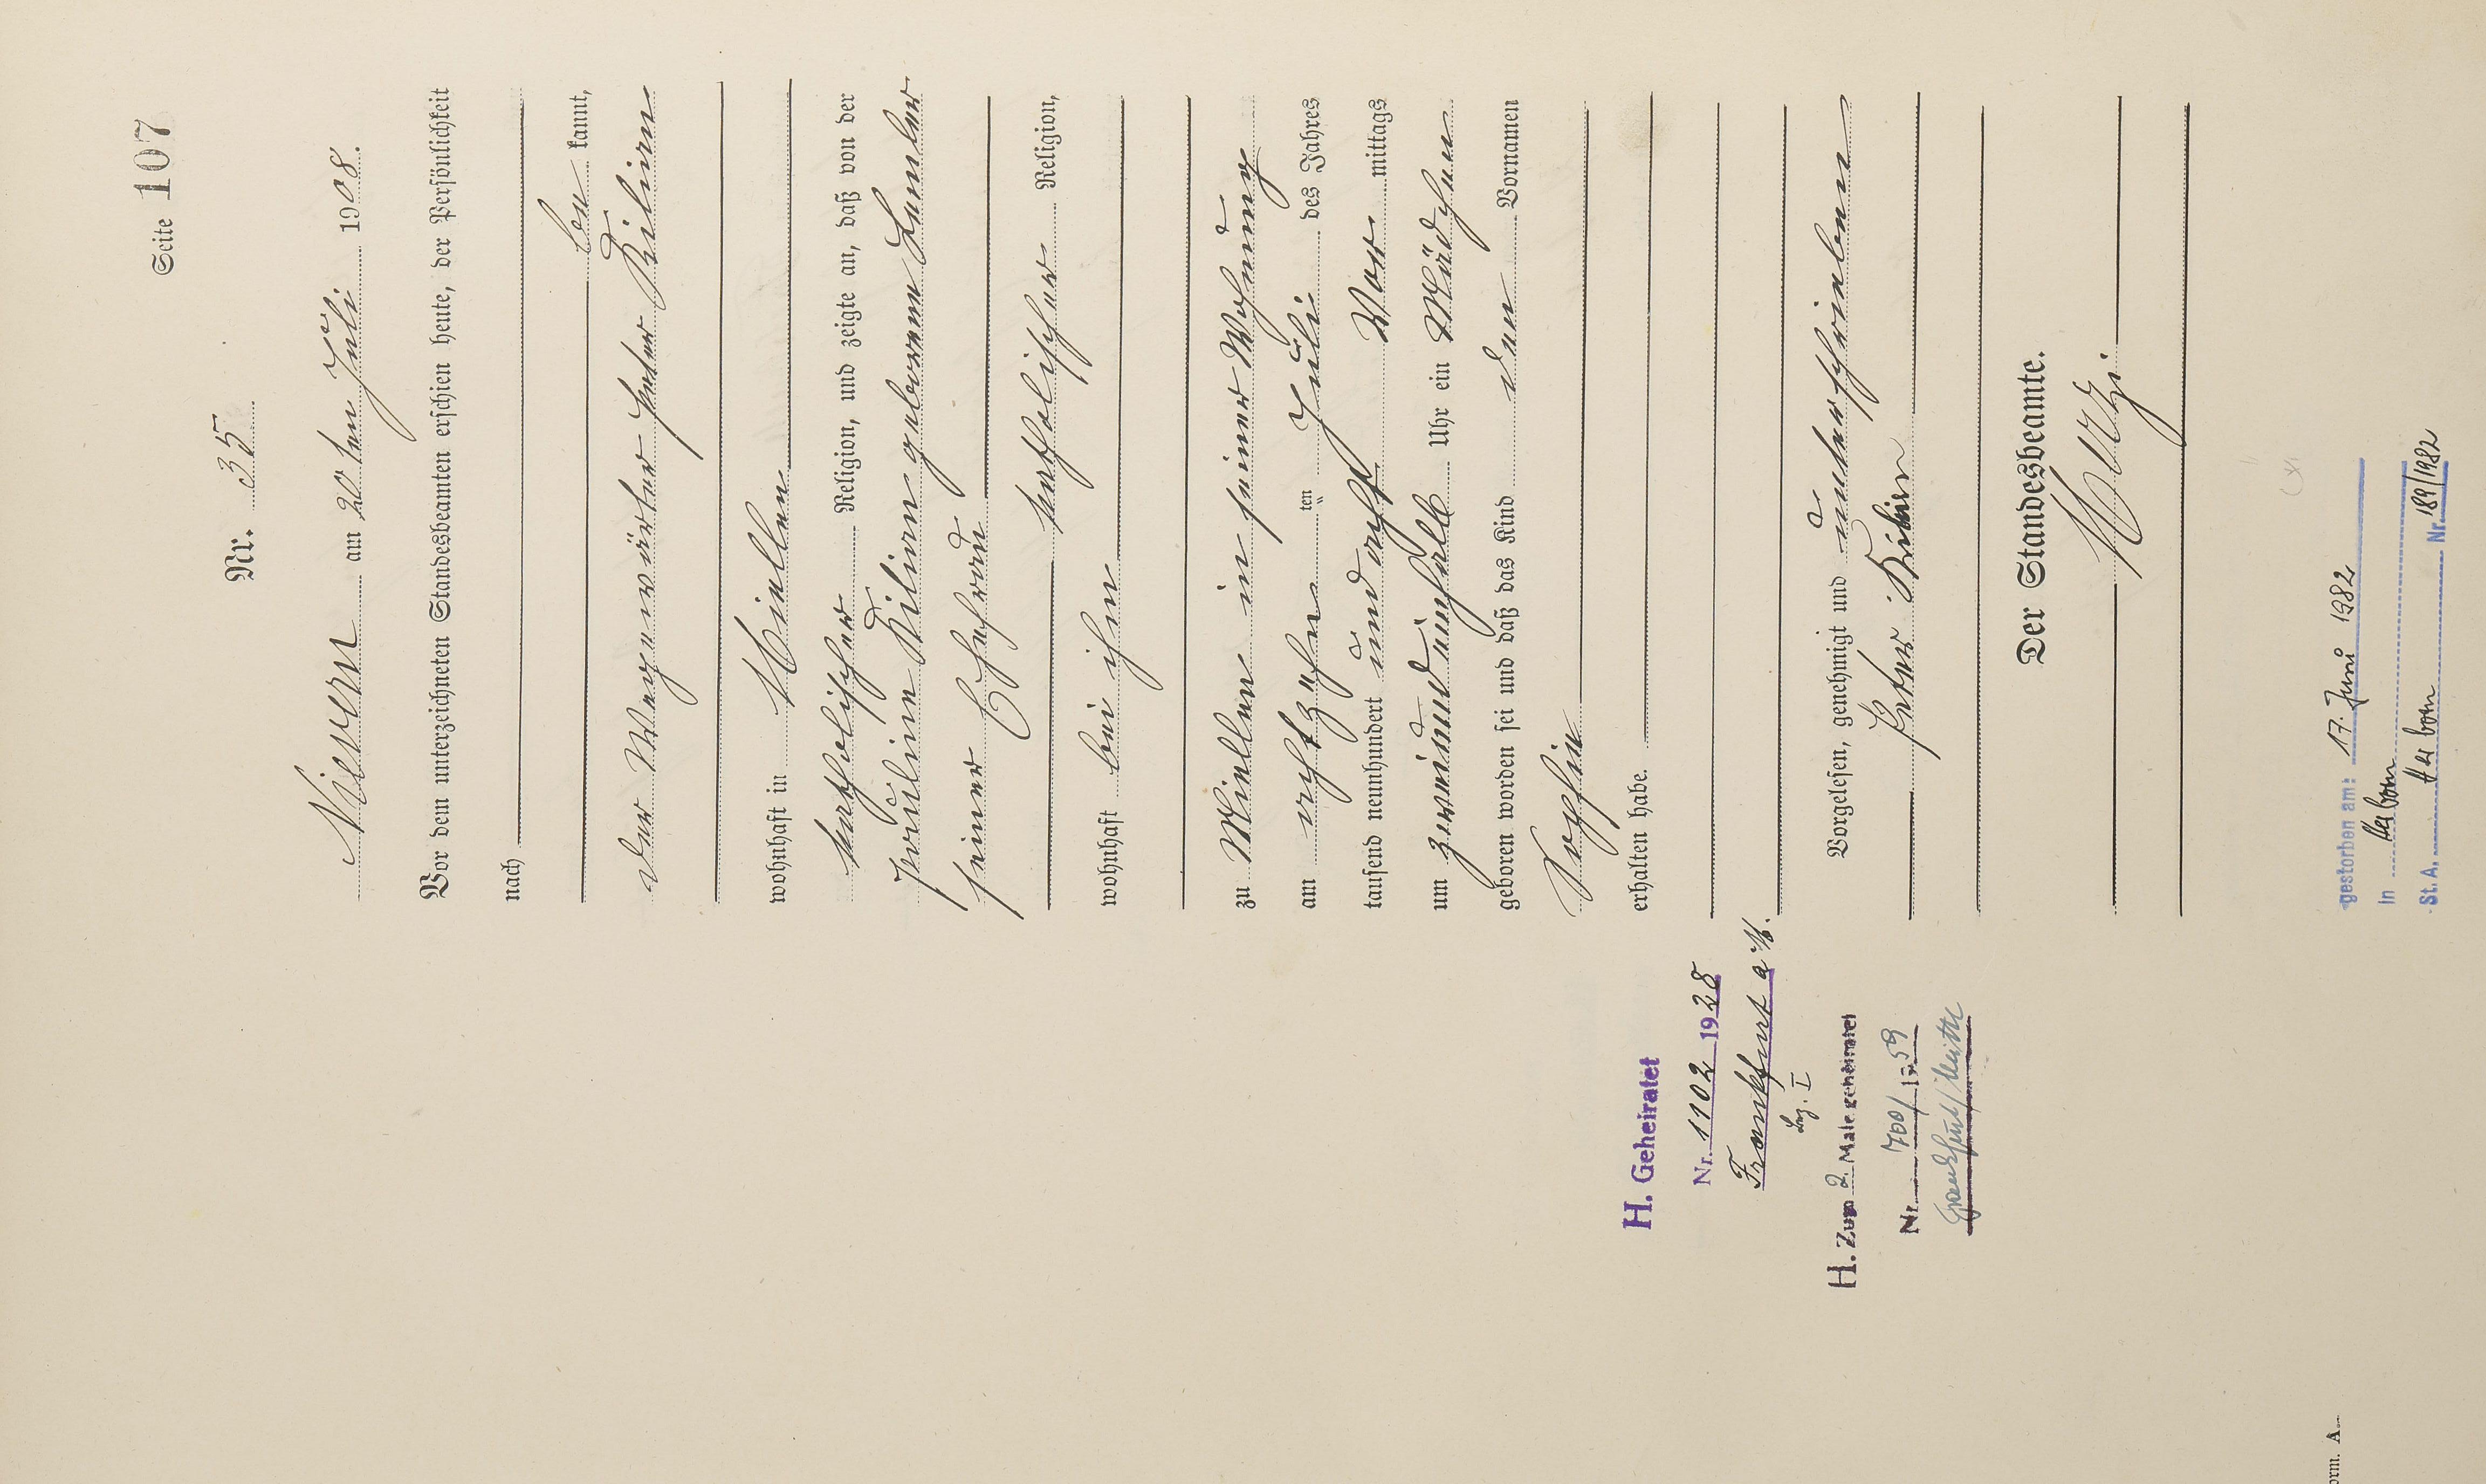 Seite 107
Nr. 35
Nievern am 20 ten Juli 1908.
Vor dem unterzeichneten Standesbeamten erschien heute, der Persönlichkeit
nach
be kannt,
der Peter
wohnhaft in Miellen
katholischer Religion, und zeigte an, daß von der
Pauline geborene
seiner Ehefrau
katholischer Religion,
wohnhaft bei ihm
zu Miellen in seiner Wohnung
am achtzehn ten Juli des Jahres
tausend neunhundert und acht Vor mittags
um Uhr ein Mädchen
geboren worden sei und daß das Kind den Vornamen
Sophie
erhalten habe.
Vorgelesen, genehmigt und unterschrieben
Peter
Der Standesbeamte.
H. Geheiratet
Nr. 1102 1928
Frankfurt a. M.
Bez. I
H. Zum 2. Male geheiratet
Nr. 700/1959
Frankfurt/Mitte
gestorben am: 17. Juni 1982
in Herborn
St. A. Herborn Nr. 189/1982
orm. A.